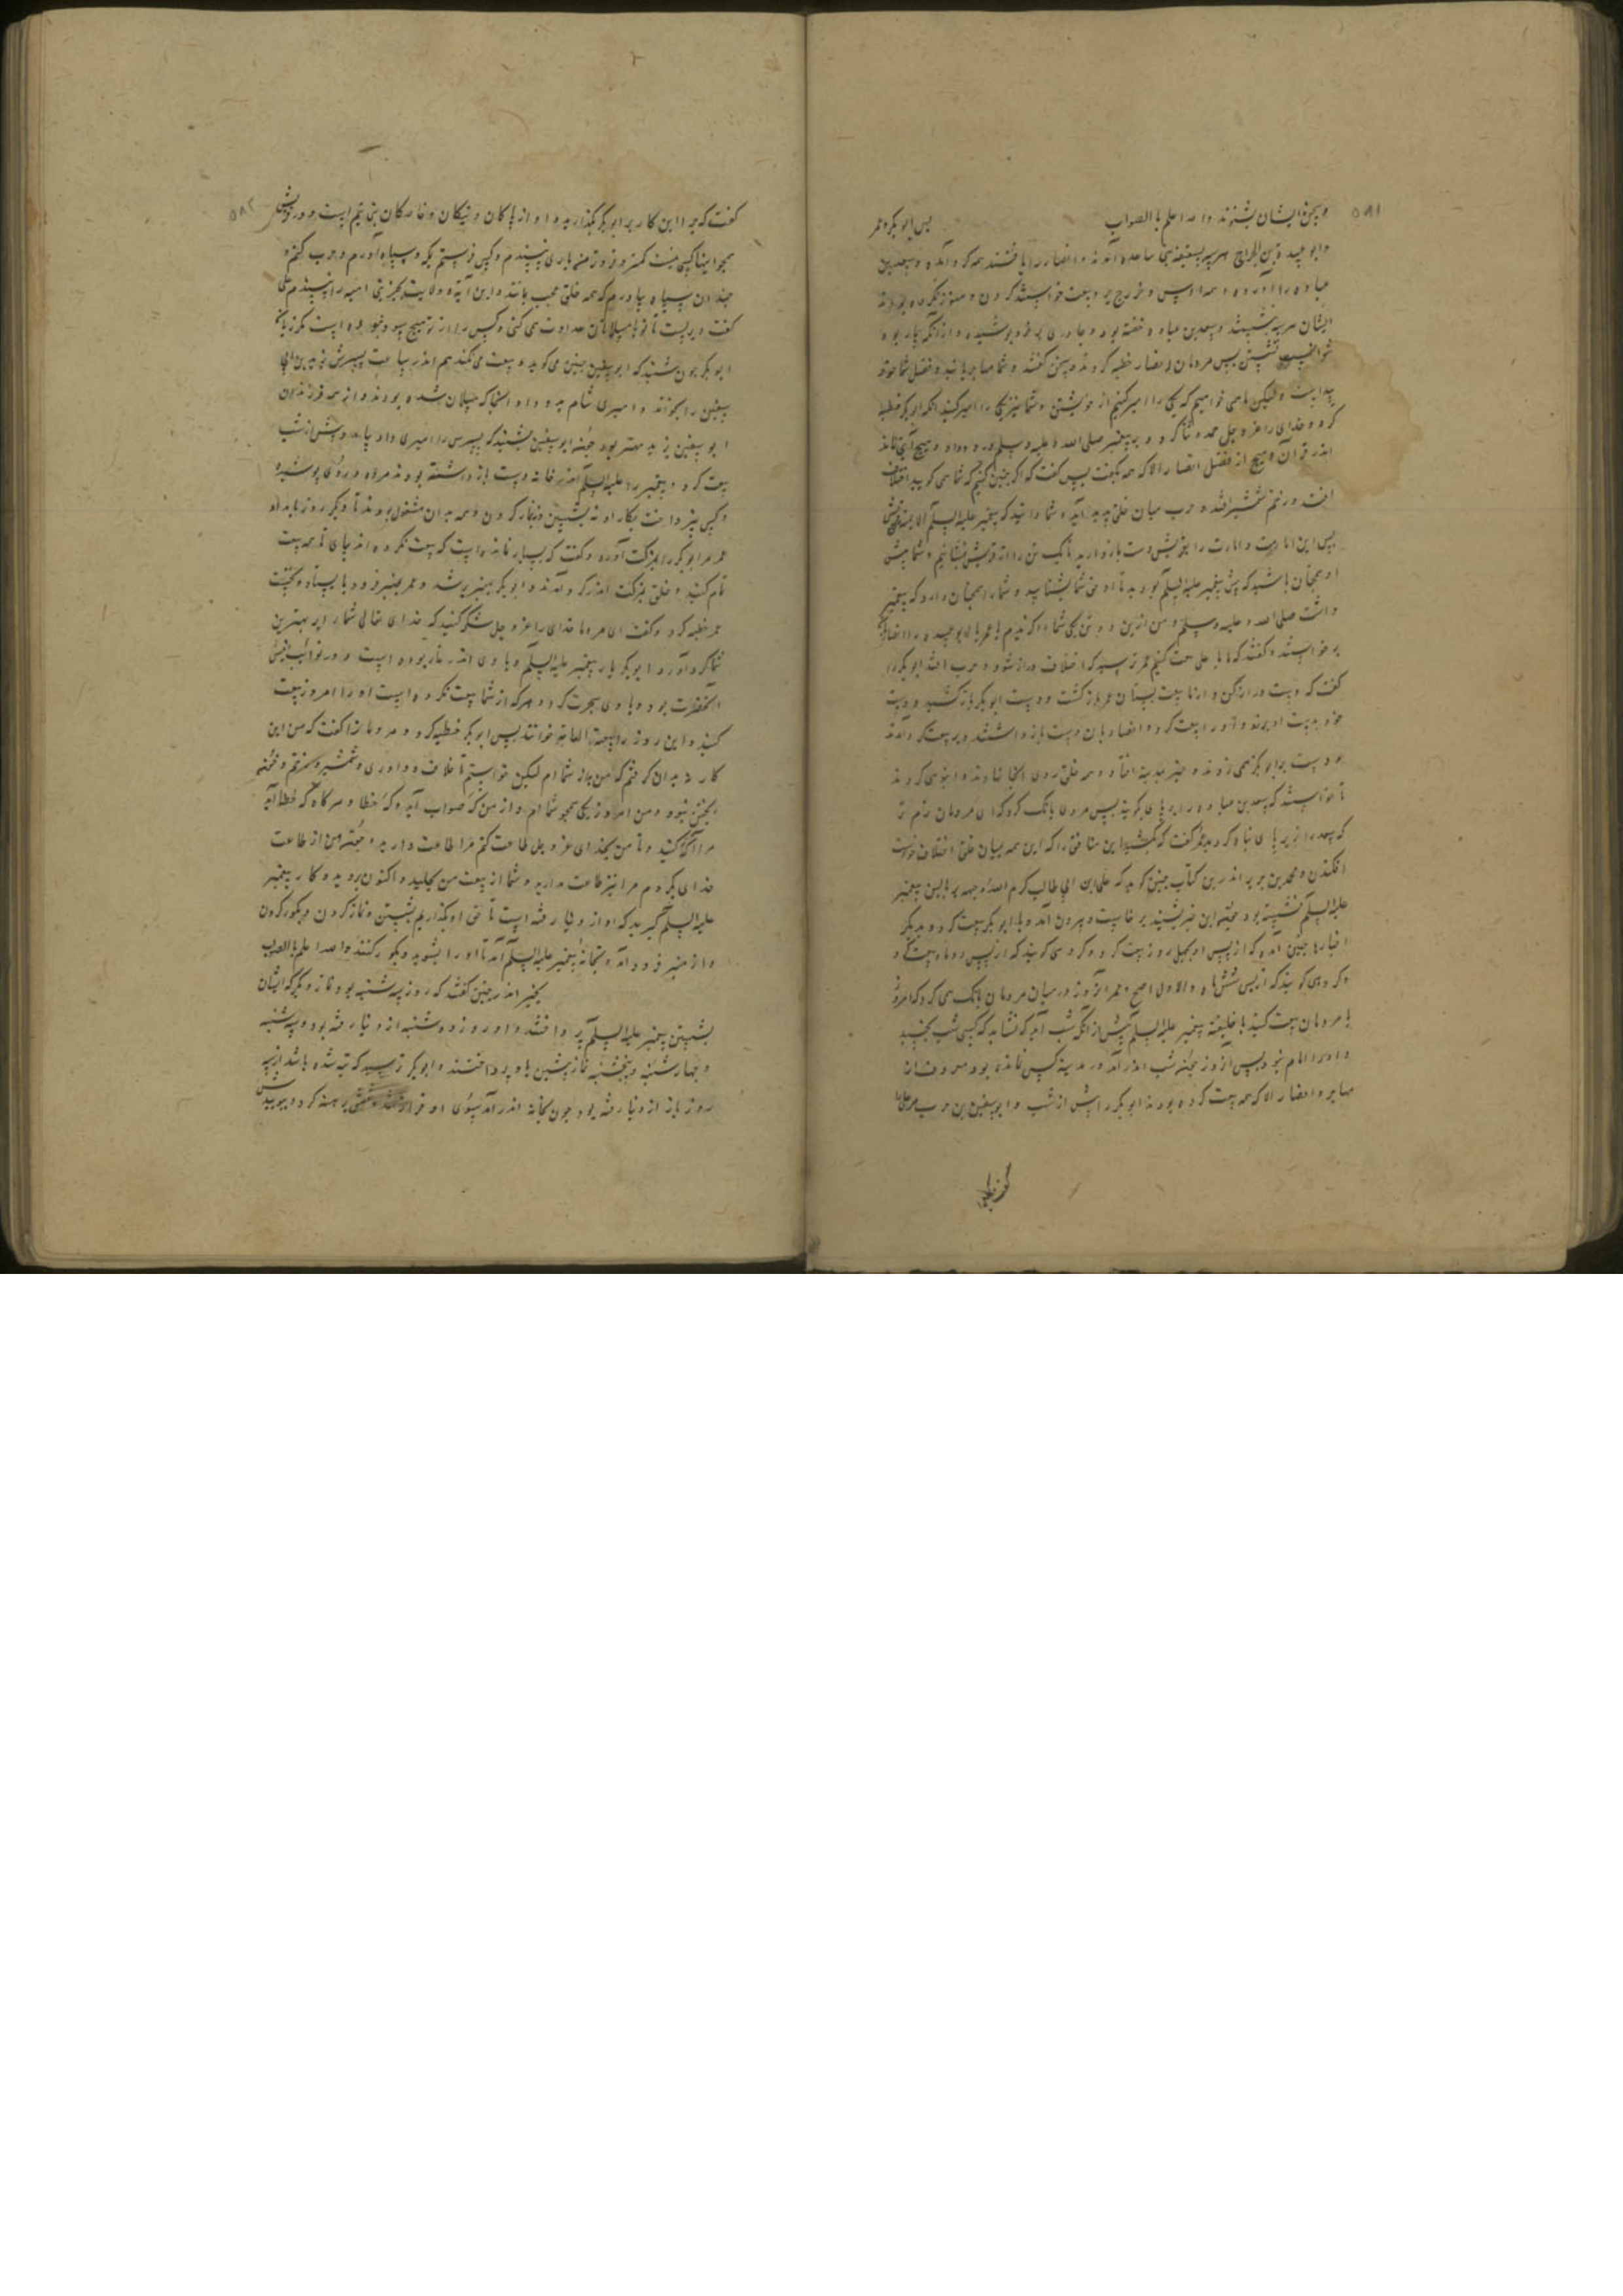 ۵۸۱
و سخن ایشان بشنوند واسه اعلم بالصواب پس ابوبکر و عمر
و ابو عبیدة بن الجراح هر سه بسقیفه بنی ساعده آمدند و انصار را یافتند همه گرد آمده و سعد بن
عباده را آورده و همه اوس و خزرج بر و بیعت خواستند کردن و هنوز نکرده بودند
ایشان هر سه بنشستند و سعد بن عباده خفته بود و چادری بر خود پوشیده و از انکه بیمار بود
نتوانست نشستن پس مردمان انصار خطبه کردند و سخن گفتند و شما مهاجریانید و فضل شما
پیداست ولیکن ما می خواهیم که یکی را امیر کنیم از خویشتن و شما نیز یکی را امیر کنید انکه ابوبکر خطبه
کرد و خدای را عز و جل حمد و ثنا کرد و بر پیغمبر صلی الله علیه و سلم درود داد و هیچ آیتی نماند
اندر قرآن و هیچ از فضل انصار الا که همه بگفت پس گفت که اگر چنین کنیم که شما می گویید اختلاف
افتد و زخم شمشیر افتد و حرب میان خلق پدید آید و شما دانید که پیغمبر علیه السلم
پس این امامت و امارت را بقریش دست بازدارید تا یک تن را از قریش بنشانیم و شما پیش
او همچنان باشید که پیش پیغمبر علیه السلم بودید تا او حق شما بشناسد و شما را همچنان دارد که پیغمبر
داشت صلی الله علیه وسلم و من ازین دو تن یکی شما را گزیدم یا عمر یا ابو عبیده را انصار
برخاستند و گفتند که ما با علی بیعت کنیم عمر ترسید که اختلاف دراز شود و حرب افتد ابوبکر را
گفت که دست دراز کن و از ما بیعت بستان عمر باز گشت و دست ابوبکر باز کشید و دست
خود بدست او برزد و او را بیعت کرد و انصاریان دست باز داشتند و بر بیعت گرد آمدند
و دست بر ابوبکر همی زدند و خبر بمدینه افتاد و همه خلق روی انجا نهادند و انبوهی کردند
تا خواستند که سعد بن عباده را بزیر پای بکوبند پس مردی بانک کرد که ای مردمان نرم تر
که سعد را بزیر پای تباه کردید عمر گفت که بکشید این منافق را که این همه میان خلق اختلاف خواست
افکندن و محمد بن جریر اندرین کتاب چنین گوید که علی ابن ابی طالب کرم الله وجهه بر بالین پیغمبر
علیه السلم نشسته بود چون این خبر بشنید برخاست و بیرون آمد و با ابوبکر بیعت کرد و بدیگر
اخبارها چنین آمد که از پس او بچهل روز بیعت کرد و گروهی گویند که از پس دو ماه بیعت کرد
و گروهی گویند که از پس شش ماه والاول اصح و عمر آنروز در میان مردمان بانک می کرد که امروز
یا مردمان بیعت کنید با خلیفه پیغمبر علیه السلم پیش از آنکه شب آید که نشاید که کسی شب بخسبد
و او را امام نبود پس آنروز چون شب اندر آمد در مدینه کس نمانده بود
مهاجر و انصار الا که همه بیعت کرده بودند ابوبکر را پیش از شب و ابو سفین بن حرب مر علی را
۵۸۲
گفت که چرا این کار بر ابوبکر بگذارید و او از پاکان و نیکان و خاصگان بنی تیم است و در قریش
همچو اینها کسی نیست کمتر و فروتر من باری نپسندم و کس فرستم بکه و سپاه آورم و حرب کنم و
چندان سپاه بیاورم که همه خلق عجب بمانند و این آیت و ولایت بجز بنی امیه را نپسندم علی
گفت دیریست تا تو با مسلمانان عداوت می کنی و کس را از تو هیچ سود نبوده است مگر زیان
ابوبکر چون بشنید که ابو سفین چنین می گوید و بیعت می نکند هم اندر ساعت پسرش یزید بن ابی
سفین را بخواند و امیری شام بدو داد انجا که مسلمان شده بودند و از همه فرزندان
ابو سفین یزید مهتر بود چون ابو سفین بشنید که پسرش را امیری داد بیامد و پیش از شب
بیعت کرد و پیغمبر را علیه السلم اندر خانه دست باز داشته بودند مرده و روی پوشیده
و کس نپرداخت بکار او نه بشستن و نه بکار کردن و همه بدان مشغول بودند تا دیگر روز بامداد
عمر مر ابوبکر را بمزکت آورد و گفت که بسیار مانده است که بیعت نکرده اند بیای تا همه بیعت
تمام کنند و خلق بمزکت اندر گرد آمدند و ابوبکر بمنبر بر شد و عمر بمنبر فرود بایستاد و نخست
عمر خطبه کرد و گفت ای مردمان خدای را عز و جل شکر کنید که خدای تعالی شما را بر بهترین
شما گرد آورد ابوبکر یار پیغمبر علیه السلم و با وی اندر غار بوده است و در نوائب انیس
آنحضرت بود و با وی هجرت کرد و هر که از شما بیعت نکرده است او را امروز بیعت
کنید و این روز را بیعة العامة خوانند پس ابوبکر خطبه کرد و مردمان را گفت که من این
کار نه بدان گرفتم که من به از شما ام لیکن خواستم تا خلاف و داوری و شمشیر و ستم و فتنه
نبود و من امروز یکی همچو شما ام و از من گه صواب آید و گه خطا و هر گاه که خطا آید
مرا آگه کنید و تا من بخدای عز و جل طاعت کنم مرا طاعت دارید و چون من از طاعت
خدای بگردم مرا نیز طاعت مدارید و شما از بیعت من بحلید و اکنون بروید و کار پیغمبر
علیه السلم گیرید که او از دنیا رفته است تا حق او بگذاریم بشستن و نماز کردن و بگور کردن
و از منبر فرود آمد و بخانه پیغمبر علیه السلم آمد تا او را بشوید و بگور کنند واسه اعلم بالصواب
بخبر اندر چنین گفتند که روز سه شنبه بود نماز دیگر که ایشان
بشستن پیغمبر علیه السلم پرداختند و او روز دوشنبه از دنیا رفته بود و سه شنبه
و چهارشنبه و پنجشنبه نماز پیشین با و پرداختند و ابوبکر ترسید که تبه شده باشد از سه
روز باز از دنیا رفته بود چون بخانه اندر آمد بسوی او برهنه کرد و ببوسید